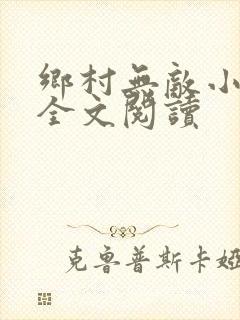 鄉村無敵小
全文閱讀
克魯普斯卡婭